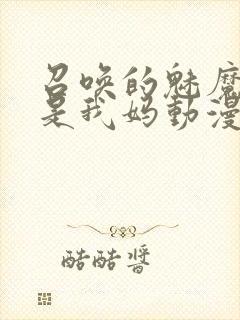 召唤的魅魔
是我妈動漫
酷酷醬